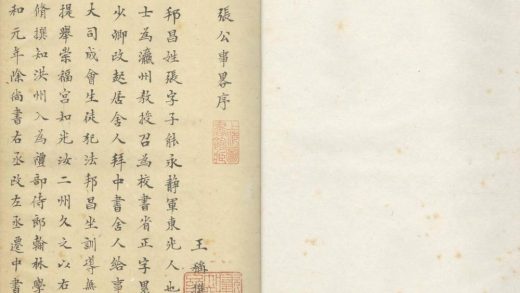 張公事畧序
王稱撰
邦昌姓張字子能永靜軍東光人也
士為瀛州教授召為校書省正字累
少卿改起居舍人拜中書舍人給事
大司成會生徒犯法邦昌坐訓導無
提舉崇福宮知光汝二州久之以右
脩撰知洪州入為禮部侍郎翰林學
和元年除尚書右丞改左丞遷中書